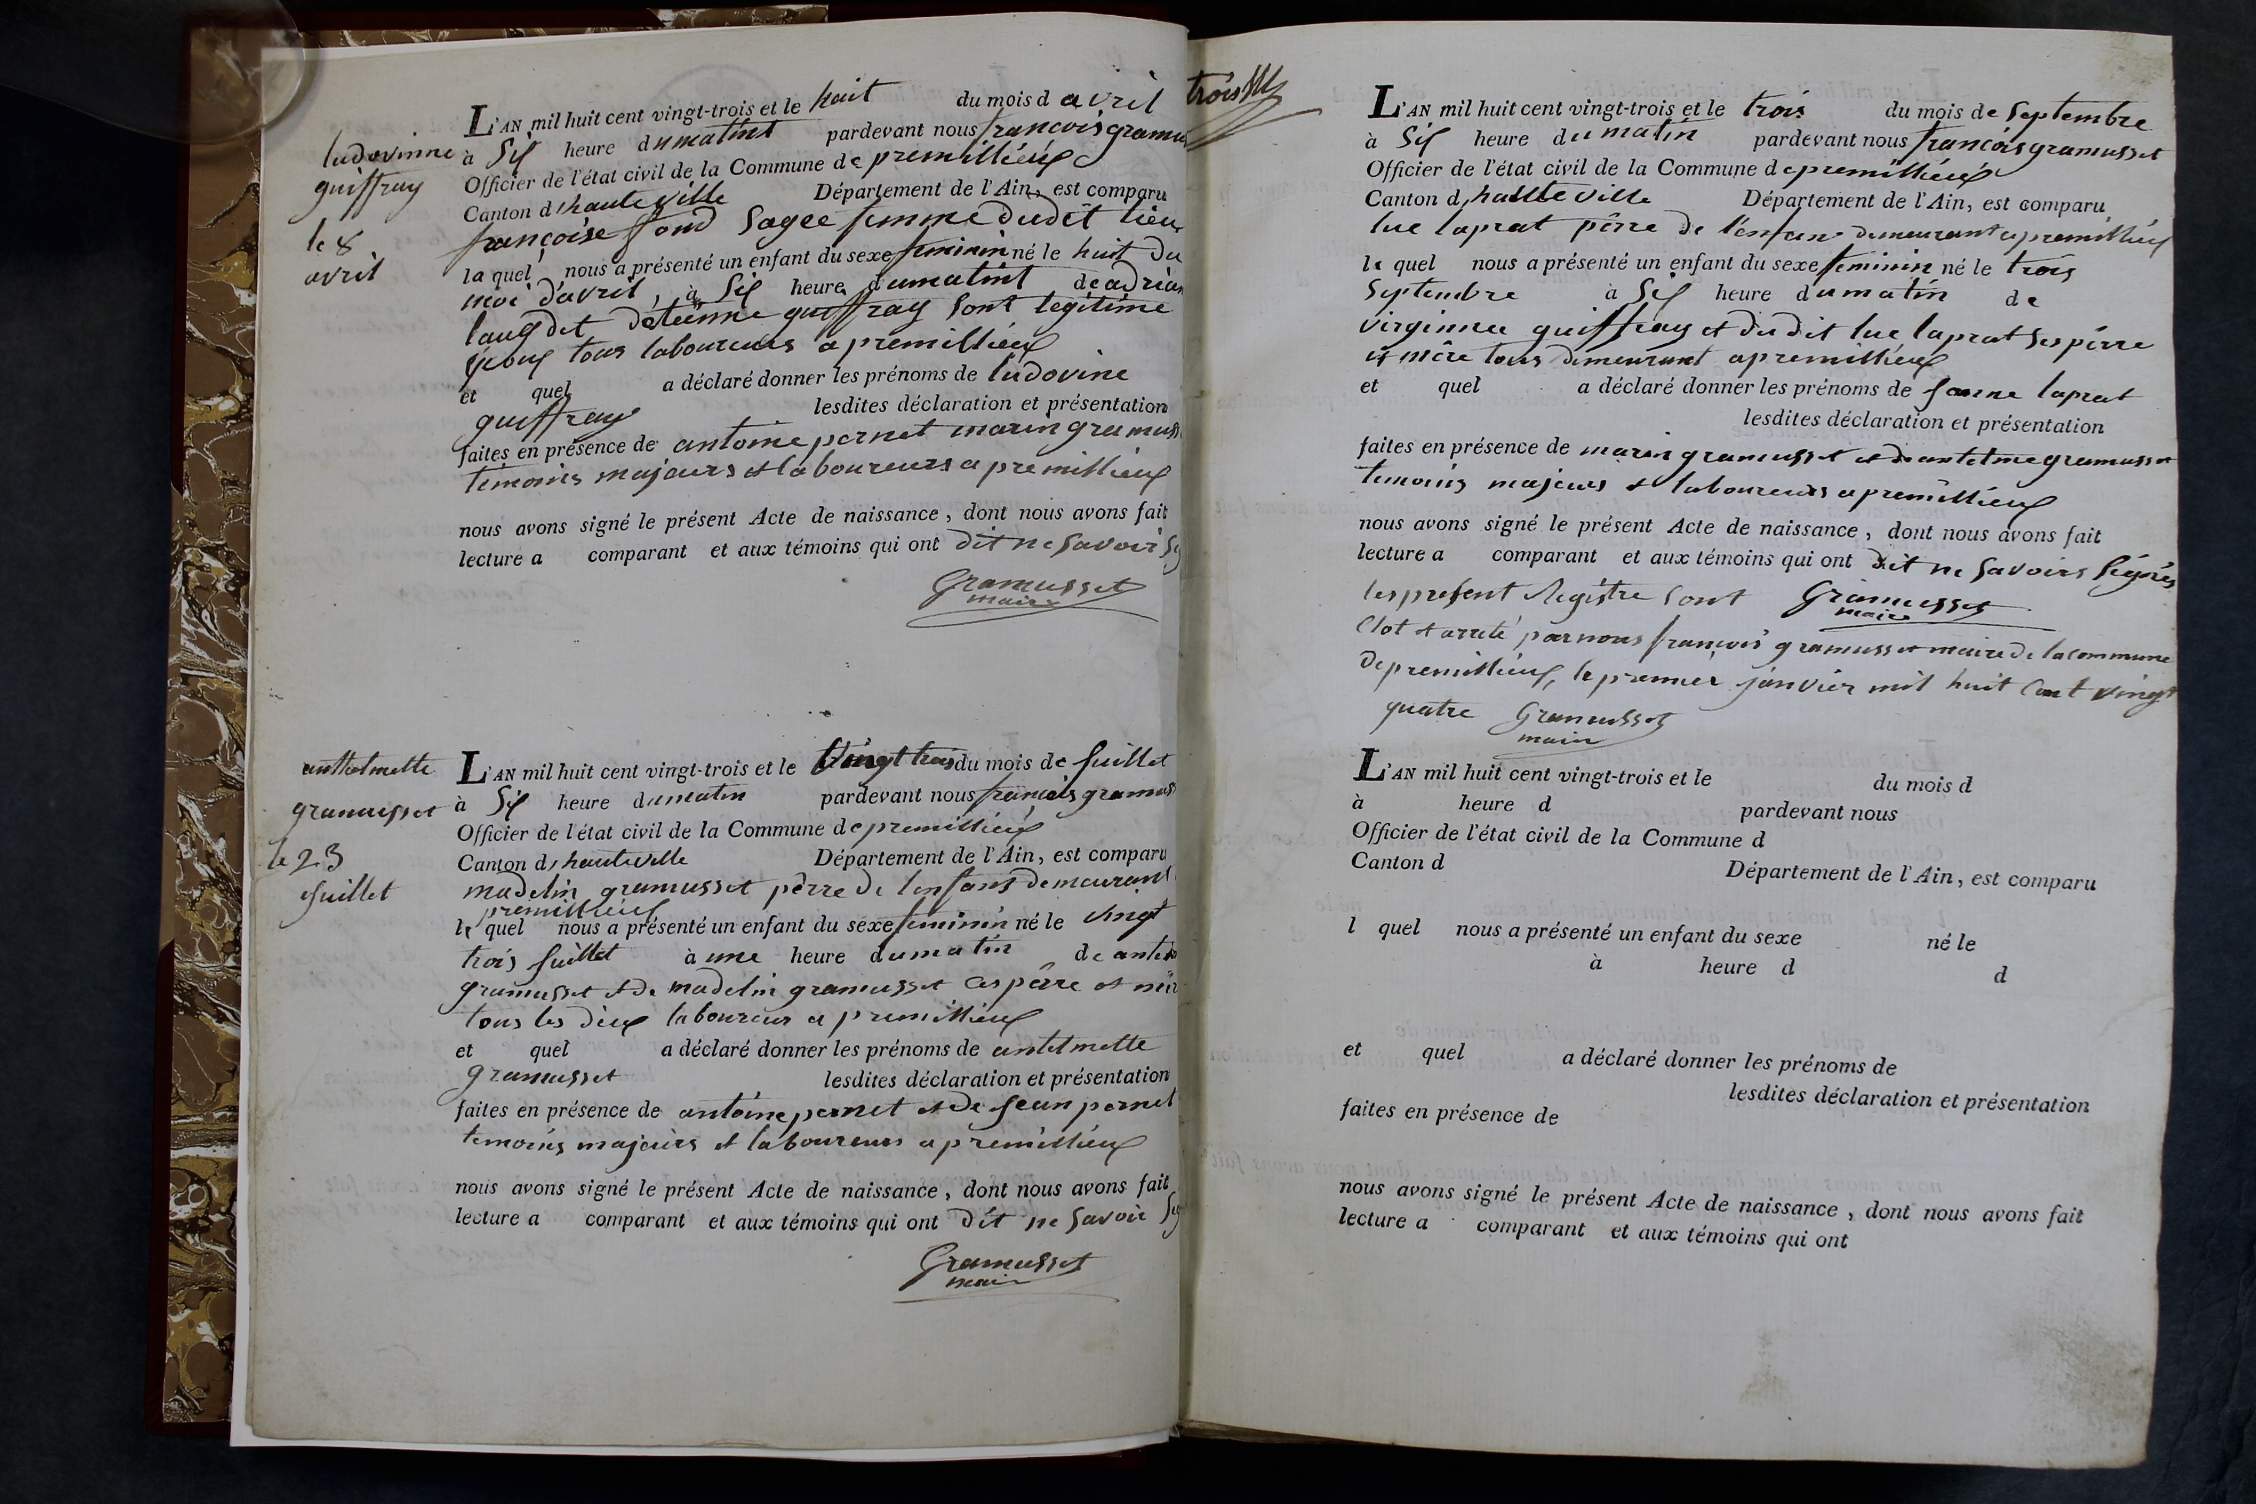 ludovinne
guiffray
le 8
avril
L'AN mil huit cent vingt-trois et le huit du mois d avril
à Six heure du matint pardevant nous francois gramus
Officier de l'état civil de la Commune de premillieux
Canton d'hauteville Département de l'Ain, est comparu
françoise fond Sagee femme dudit lieu
la quel nous a présenté un enfant du sexe feminin né le huit du
moi d'avril, à Six heure du matint de adrian
det detienne guiffray sont legitime
epoux tous laboureurs a premillieux
et quel a déclaré donner les prénoms de ludovine
guiffray lesdites déclaration et présentation
faites en présence de antoine pernet marin gramuss
temoins majeurs et laboureurs a premillieux
nous avons signé le présent Acte de naissance, dont nous avons fait
lecture a comparant et aux témoins qui ont dit ne Savoir Sig
Gramusset
maire
anthelmette
gramusset
le 23
juillet
L'AN mil huit cent vingt-trois et le Vingt trois du mois de juillet
à Six heure du matin pardevant nous francois gramuss
Officier de l'état civil de la Commune de premillieux
Canton d'hauteville Département de l'Ain, est comparu
madelin gramusset pêrre de lenfans demeurant
premillieux
le quel nous a présenté un enfant du sexe feminin né le vingt
trois juillet à une heure du matin de
gramusset et de madelin gramusset ces pêre et mêr
tous les deux laboureur a premillieux
et quel a déclaré donner les prénoms de antelmette
gramusset lesdites déclaration et présentation
faites en présence de antoine pernet et de jean pernet
temoins majeurs et laboureurs a premillieux
nous avons signé le présent Acte de naissance, dont nous avons fait
lecture a comparant et aux témoins qui ont dit ne Savoir Sig
Gramusset
maire
trois
L'AN mil huit cent vingt-trois et le trois du mois de Septembre
à Six heure du matin pardevant nous francois gramusset
Officier de l'état civil de la Commune de premillieux
Canton d'hauteville Département de l'Ain, est comparu
luc laprat pêrre de lenfant demeurant a premillieux
le quel nous a présenté un enfant du sexe feminin né le trois
Septembre à Six heure du matin de
virginnee guiffray et du dit luc laprat Ses pêrre
et mêre tous demeurant a premillieux
et quel a déclaré donner les prénoms de janne laprat
lesdites déclaration et présentation
faites en présence de marin gramusset et de antelme gramusset
temoins majeurs et laboureurs a premillieux
nous avons signé le présent Acte de naissance, dont nous avons fait
lecture a comparant et aux témoins qui ont dit ne Savoirs Signés
les present Registre Sont Gramusset
maire
Clot et arreté par nous françois gramusset maire de la commune
de premillieux, le premier janvier mil huit Cent vingt
quatre Gramusset
maire
L'AN mil huit cent vingt-trois et le du mois d
à heure d pardevant nous
Officier de l'état civil de la Commune d
Canton d Département de l'Ain, est comparu
l quel nous a présenté un enfant du sexe né le
à heure d d
et quel a déclaré donner les prénoms de
lesdites déclaration et présentation
faites en présence de
nous avons signé le présent Acte de naissance, dont nous avons fait
lecture a comparant et aux témoins qui ont